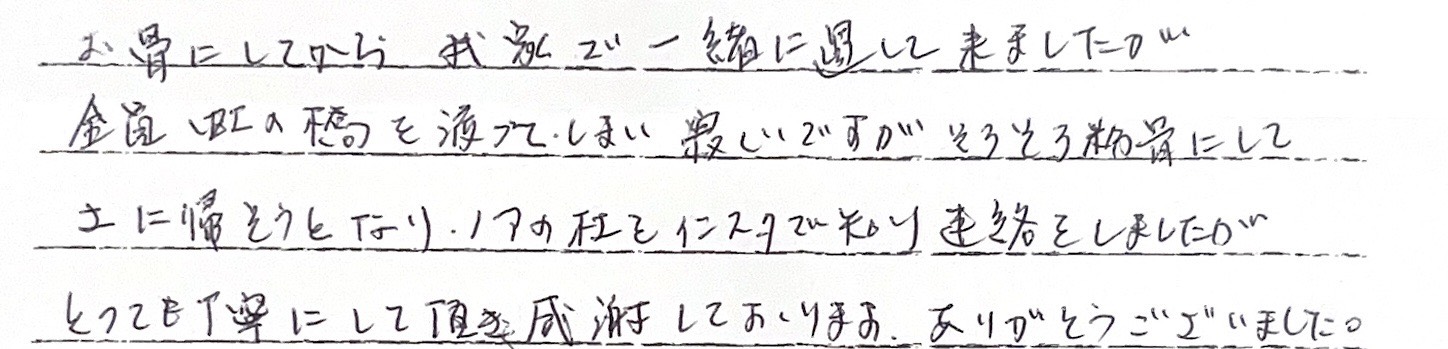 お骨にしてから 我家で一緒に過して来ましたが
全員 虹の橋を渡ってしまい 寂しいですがそろそろ粉骨にして
土に帰そうとなり、ノアの杜をインスタで知り 連絡をしましたが
とっても丁寧にして頂き感謝しております。ありがとうございました。